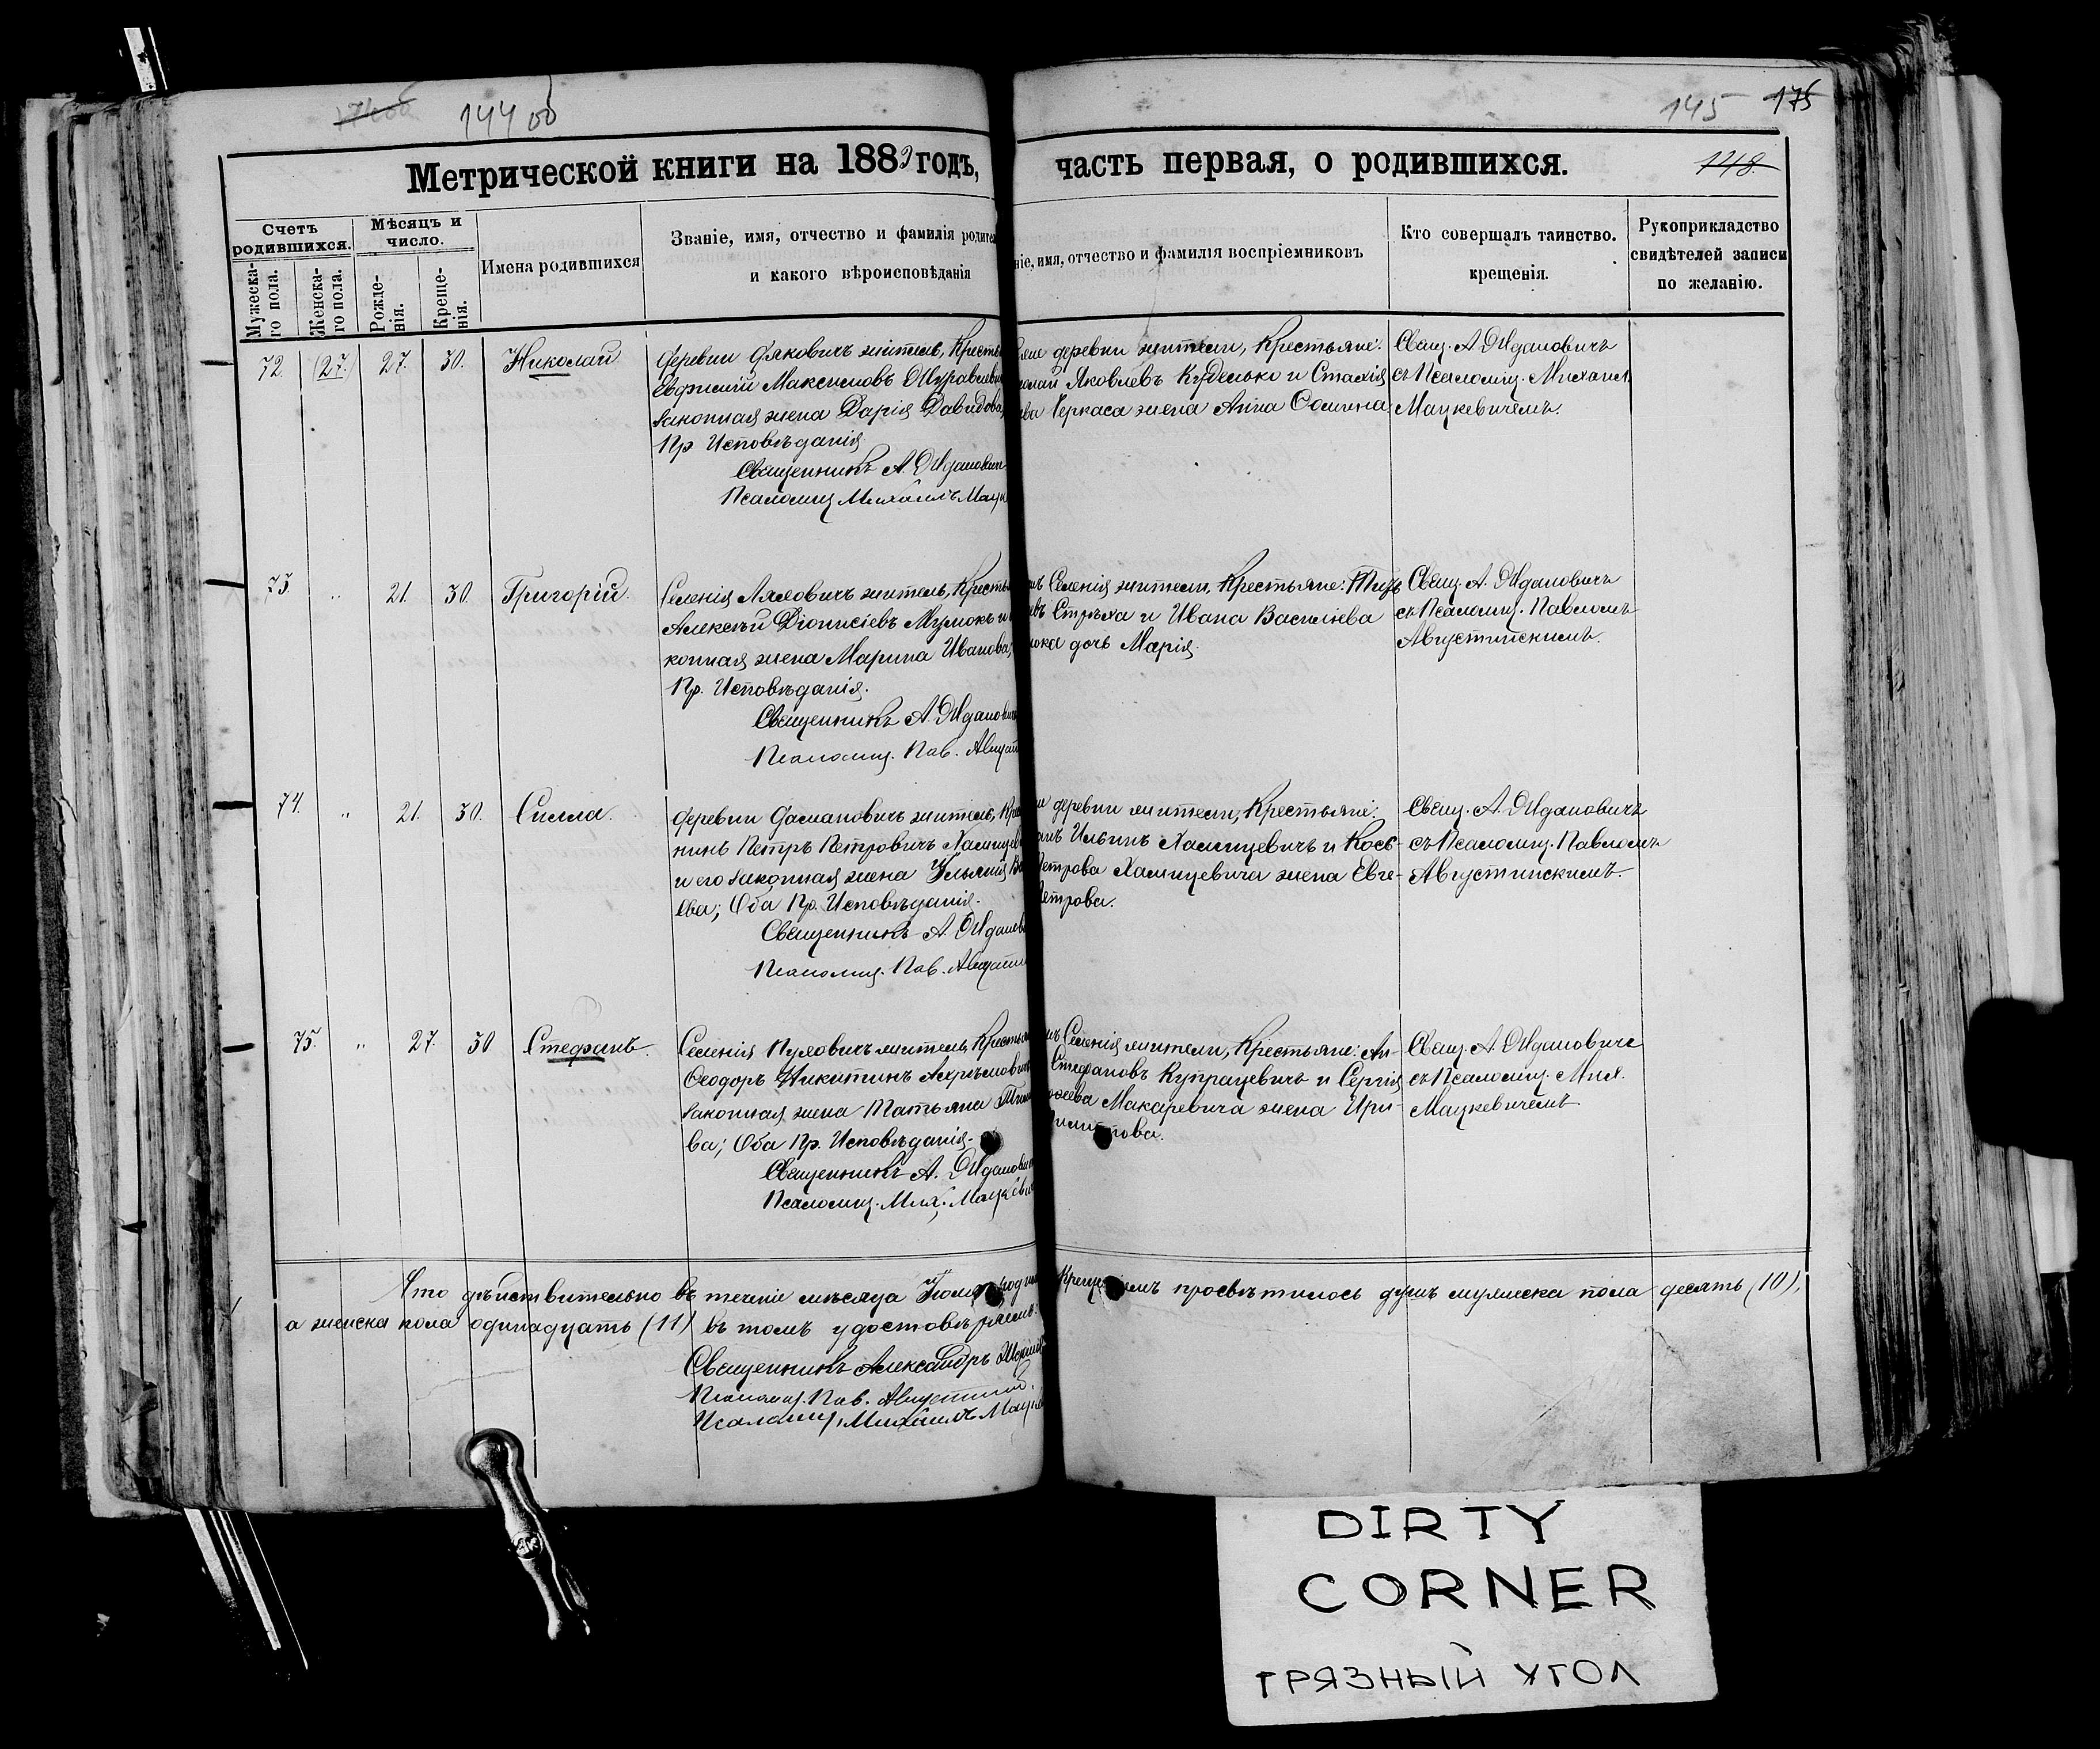 144 об
145 175
148.
Метрической книги на 1882 годъ, часть первая, о родившихся.
Счетъ родившихся.
Мужеска-
го пола.
Женска-
го пола.
Мѣсяцъ и число.
Рожде-
нія.
Креще-
нія.
Имена родившихся
Званіе, имя, отчество и фамилія родител
и какого вѣроисповѣданія
ніе, имя, отчество и фамилія воспріемниковъ
Кто совершалъ таинство
крещенія.
Рукоприкладство
свидѣтелей записи
по желанію.
72. (27.) 27. 30. Николай
деревни Дяковичъ житель, Кресть
Евфимій Максимовъ
законная жена Дарія Давидова,
Пр Исповѣданія
Священникъ А. Ждановичъ
Псаломщ Михаилъ Мацк
деревни жители, Крестьяне:
Яковлевъ Куделько и Стахія
Черкаса жена Анна Сомина
Свящ. А Ждановичъ
съ Псаломщ. Михаил.
Мацкевичемъ.
73. " 21. 30. Григорій.
Селенія Ляховичъ житель, Кресть
Алексѣй Діонисіевъ Мумокъ и
конная жена Марина Иванова,
Пр. Исповѣданія.
Священникъ А. Жданович
Псаломщ. Пав. Август
Селенія жители, Крестьяне:
евъ Стрѣха и Ивана Василіева
дочь Марія.
Свящ. А. Ждановичъ
съ Псаломщ. Павломъ
Августинскимъ.
74. " 21. 30. Силла.
деревни Даманович житель, Крес
нинъ Петръ Петровичъ Хамицев
и его законная жена Ульянія Ва
ева; Оба Пр. Исповѣданія.
Священникъ А. Жданов
Псаломщ. Пав. Августин
деревни жители, Крестьяне:
Ильинъ Хамицевичъ и Кось-
Петрова Хамицевича жена Евге-
Петрова.
Свящ. А. Ждановичъ
съ Псаломщ. Павломъ
Августинскимъ.
75. " 27. 30 Стефанъ.
Селенія Пуховичъ житель, Крестья
Ѳеодоръ Никитинъ Ахрѣмович
законная жена Татьяна Тим
ва; Оба Пр. Исповѣданія.
Священникъ А. Жданович
Псаломщ. Мих. Мацкеви
Селенія жители, Крестьяне: Ан-
Стефановъ Купрацевичъ и Сергія
Макаревича жена Ири-
Свящ. А Ждановичъ
съ Псаломщ. Мих.
Мацкевичемъ
Что дѣйствительно въ теченіи мѣсяца родил Крещеніемъ просвѣтилось душъ мужеска пола десять (10),
а женска пола одинадцать (11) въ томъ удостовѣряемъ:
Священникъ Александръ Жданов
Псаломщ. Пав. Августинск.
Псаломщ. Михаилъ Мацке
DIRTY
CORNER
ГРЯЗНЫЙ УГОЛ